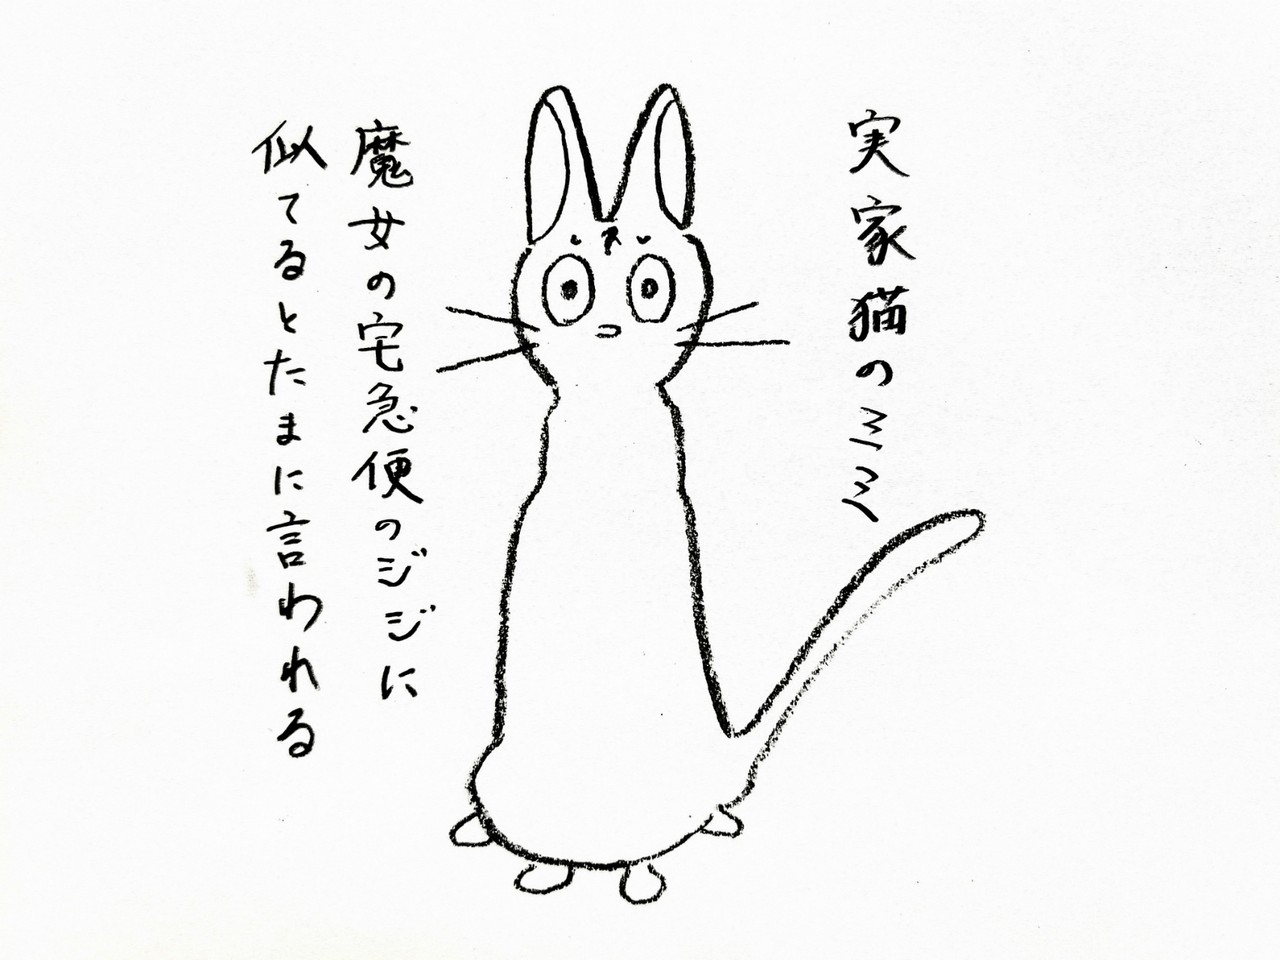 実家猫のミミ
魔女の宅急便のジジに
似てるとたまに言われる